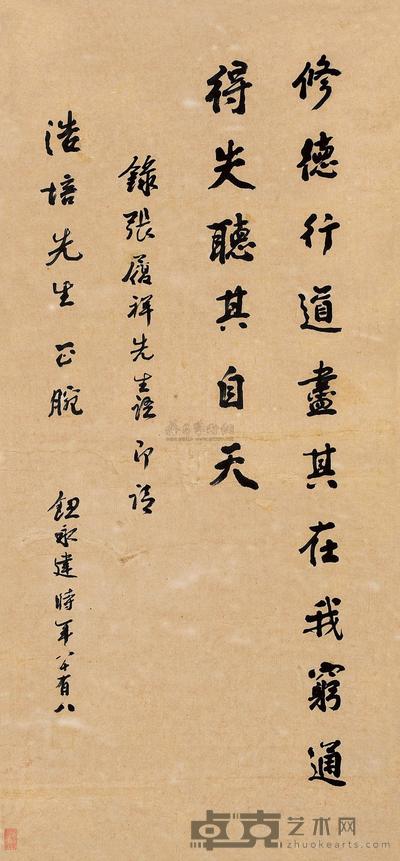 修德行道盡其在我窮通
得失聽其自天
錄張履祥先生語即請
浩培先生正腕
鈕永建時年八十有八
卓克艺术网
zhuokearts.com